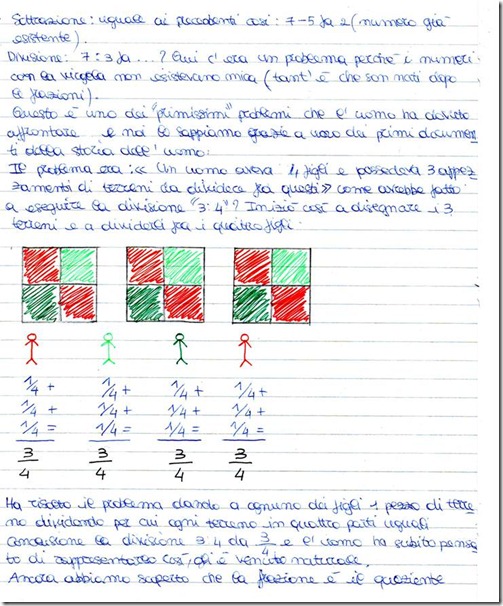 Sottrazione: uguale ai precedenti casi: 7-5 fa 2 (numero già
esistente).
Divisione: 7:3 fa ...? Qui c'era un problema perché i numeri
con la virgola non esistevano mica (tant'è che son nati dopo
le frazioni).
Questo è uno dei "primissimi" problemi che l'uomo ha dovuto
affrontare e noi lo sappiamo grazie a uno dei primi documen
ti della storia dell'uomo.
Il problema era: << Un uomo aveva 4 figli e possedeva 3 appez
zamenti di terreni da dividere fra questi >> come avrebbe fatto
a eseguire la divisione "3:4"? Iniziò così a disegnare i 3
terreni e a dividerli fra i quattro figli:
1/4 + 1/4 + 1/4 + 1/4 +
1/4 + 1/4 + 1/4 + 1/4 +
1/4 = 1/4 = 1/4 = 1/4 =
3 3 3 3
4 4 4 4
Ha risolto il problema dando a ognuno dei figli 1 pezzo di terre
no dividendo per cui ogni terreno in quattro parti uguali
conclusione la divisione 3:4 da 3/4 e l'uomo ha subito pensa
to di rappresentarlo così, gli è venuto naturale.
Ancora abbiamo saputo che la frazione è il quoziente